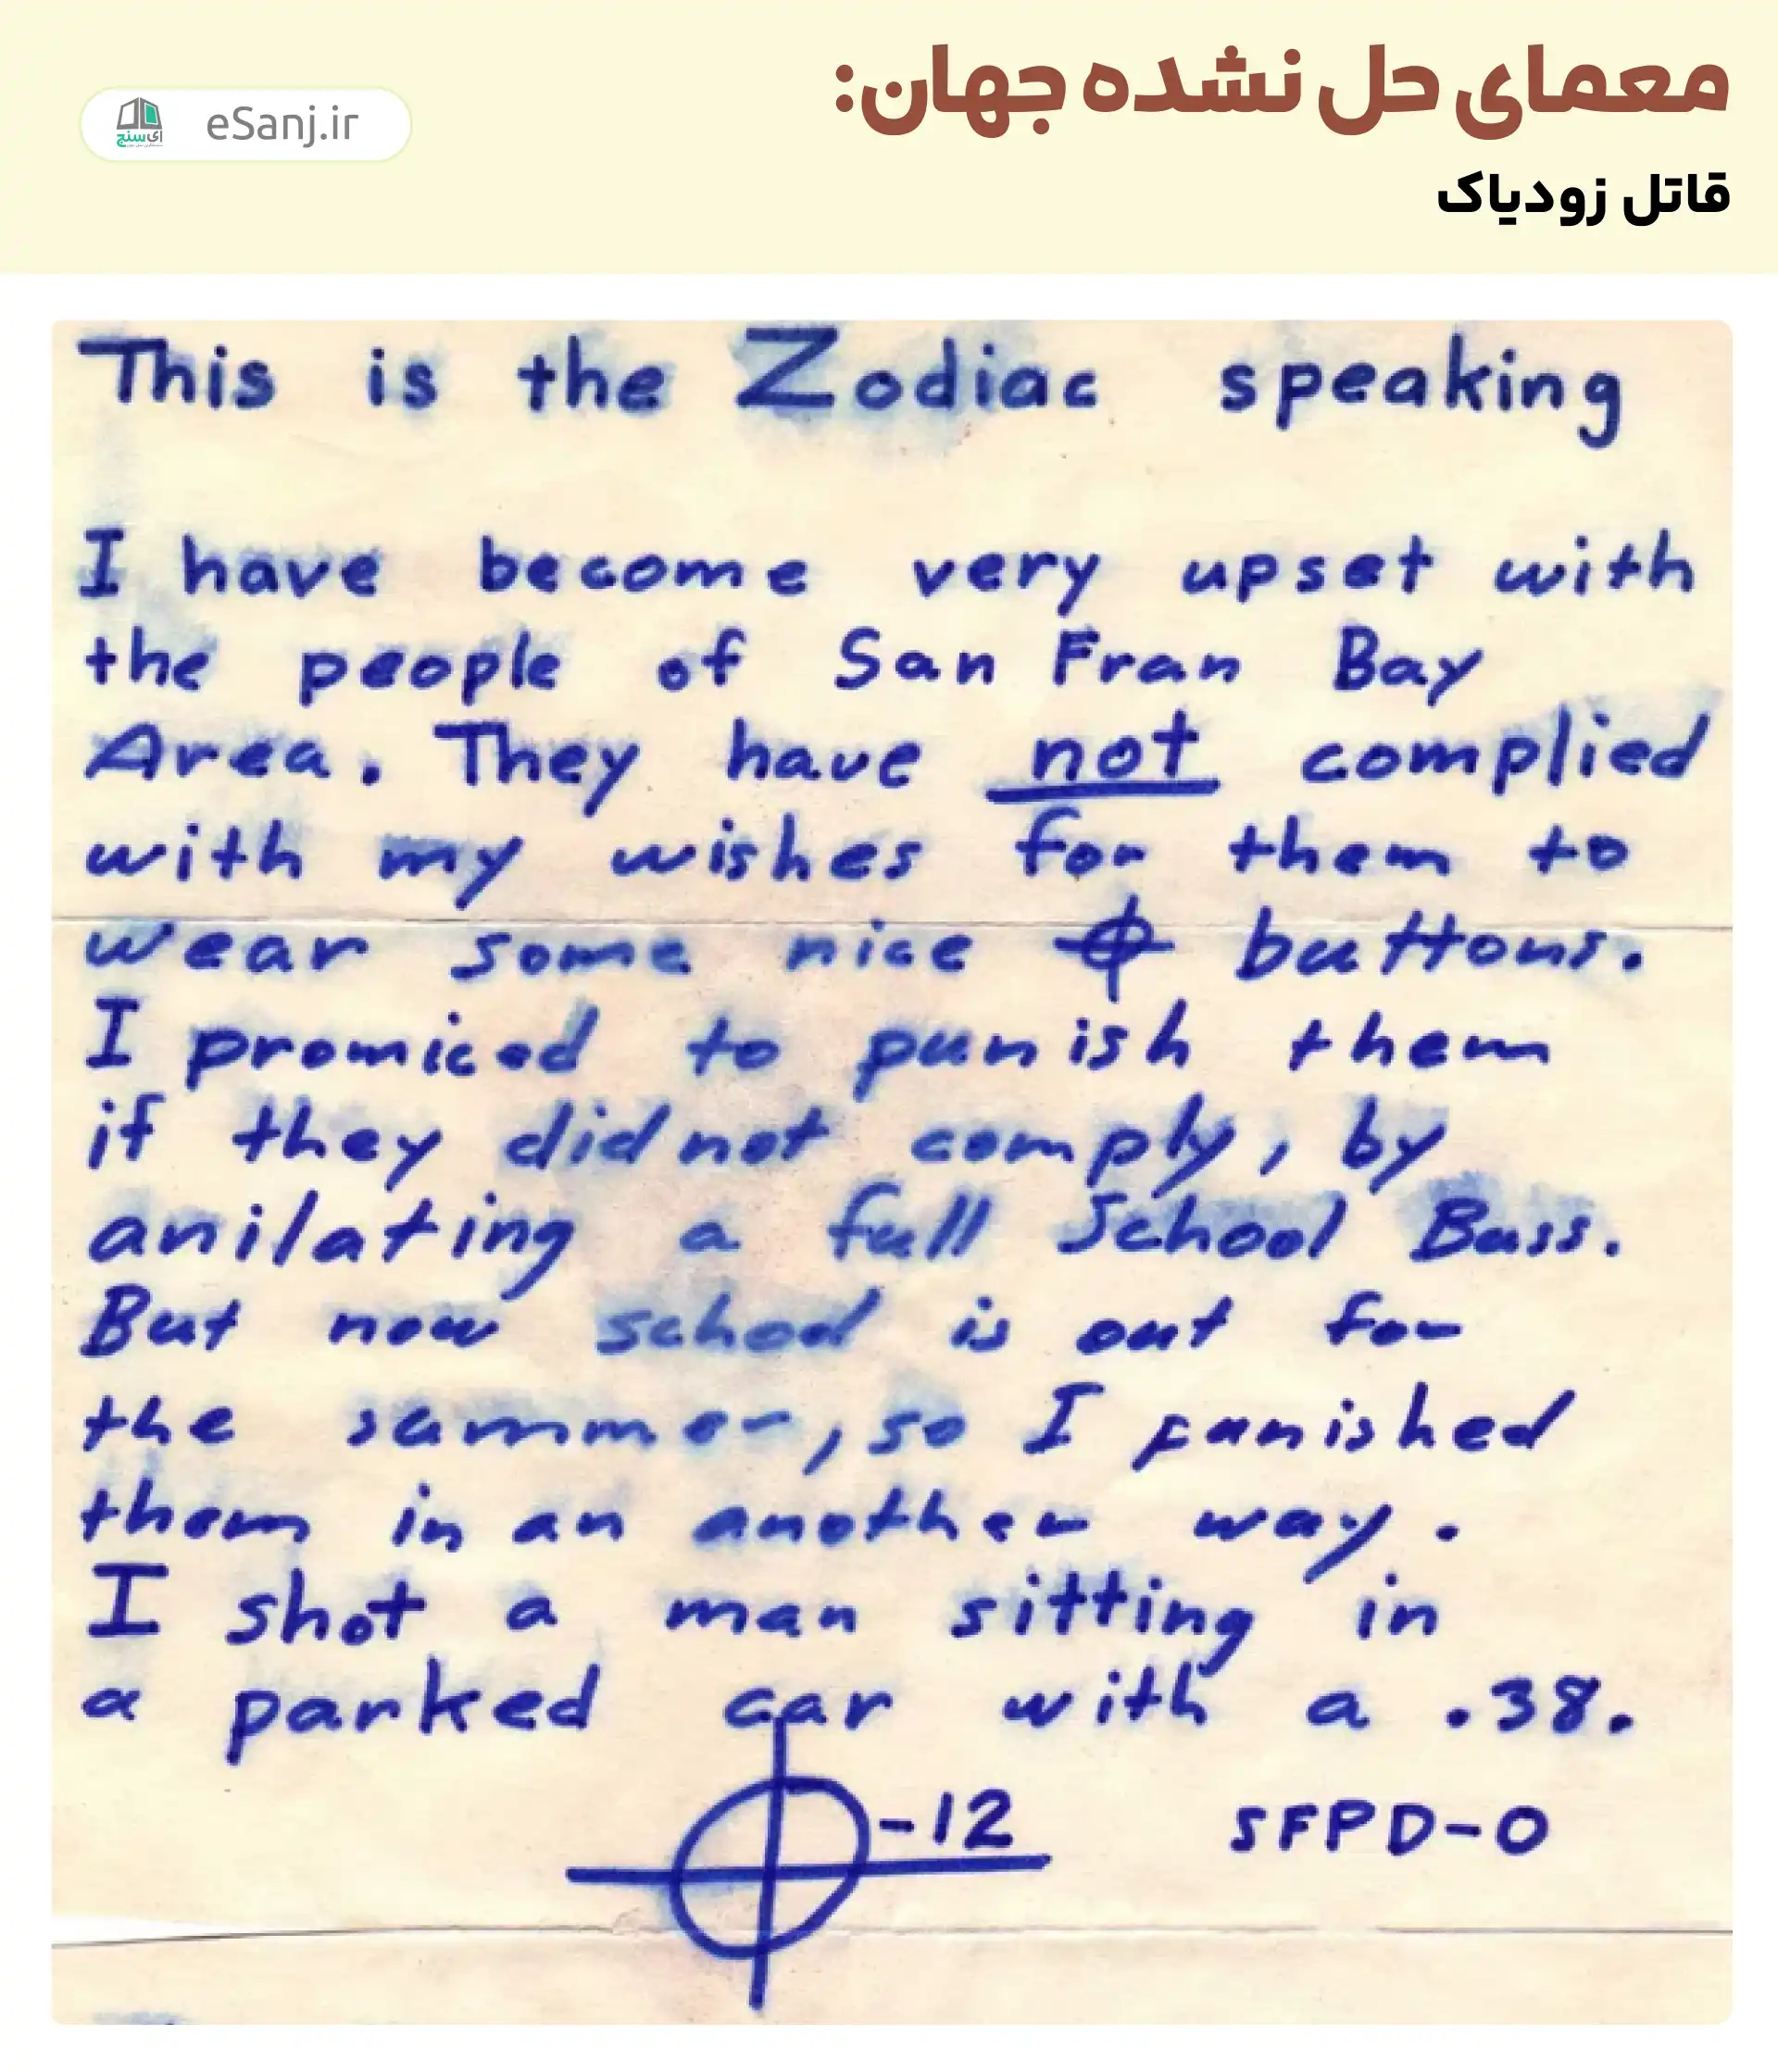 معمای حل نشده جهان:
قاتل زودیاک
eSanj.ir
ای‌سنج
This is the Zodiac speaking
I have become very upset with
the people of San Fran Bay
Area. They have not complied
with my wishes for them to
wear some nice ⌖ buttons.
I promiced to punish them
if they did not comply, by
anilating a full School Buss.
But now school is out for
the summer, so I punished
them in an another way.
I shot a man sitting in
a parked car with a .38.
⌖-12 SFPD-0